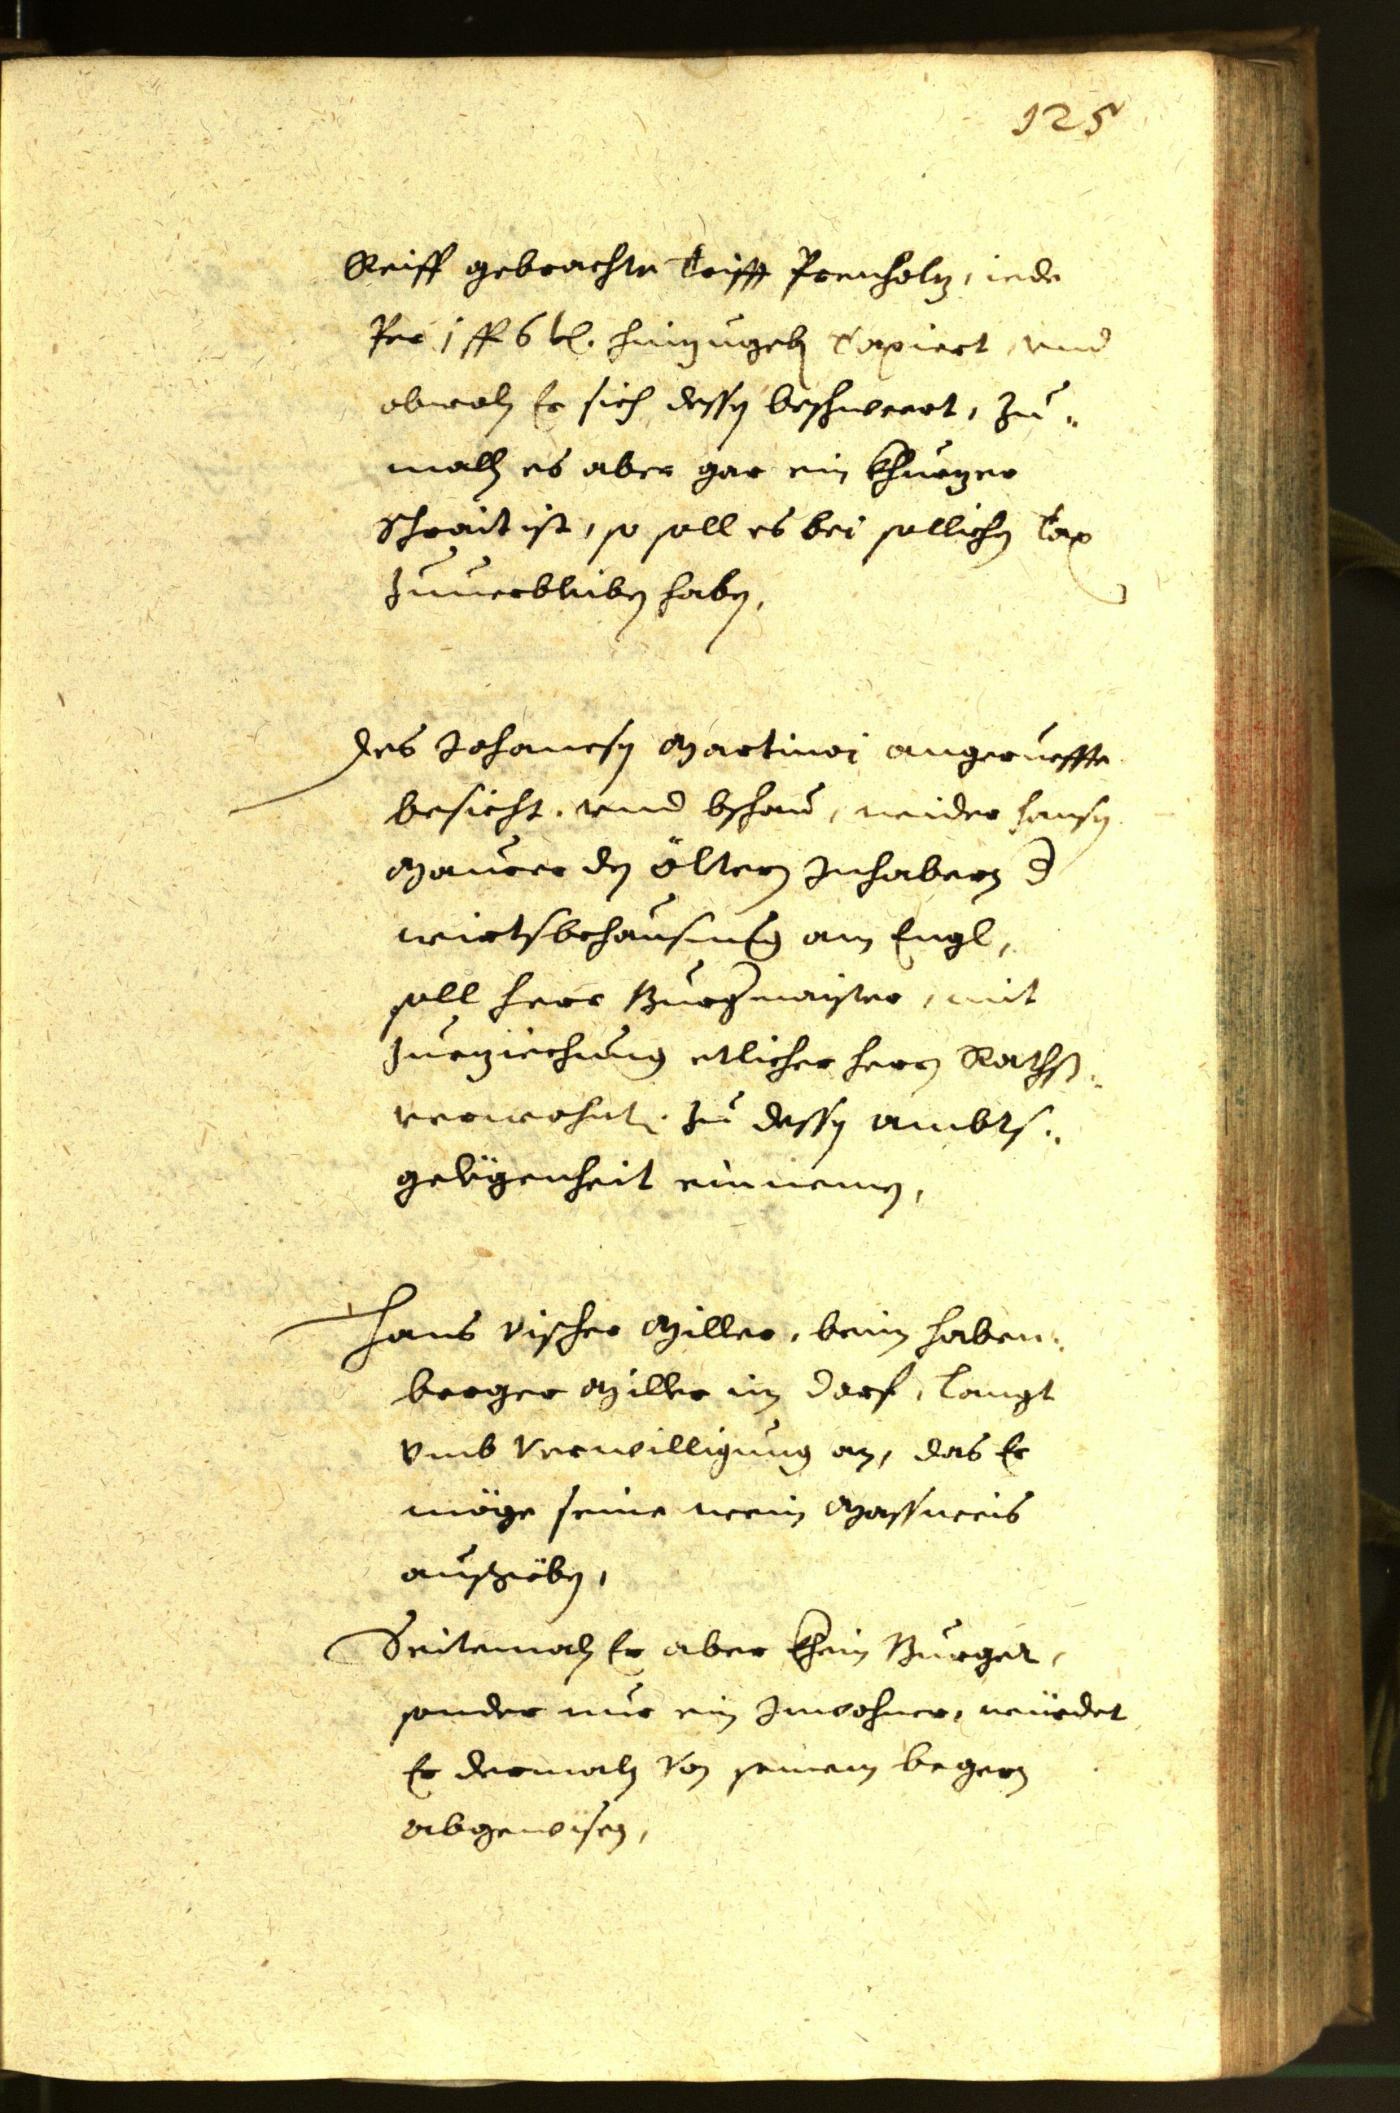 125
Reiff gebrachte Trifft Prenholz, iede
Per 1 fl 6 kr. hinzugeb[en] Taxiert, vnd
obwoln Er sich dessen beschweert, Zu¬
maln es aber gar ein Khurzer
Schrait ist, so soll es bei sollichen Tax
Zuuerbleiben haben,
Des Johannesen Martinoi angerueffte
besicht. vnd bschau, wider Hansen
Maurer den öltern Inhabern d
wirtsbehausung am Engl,
soll herr Burgmaister, mit
Zueziechung etlicher herrn Raths¬
verwohnt. Zu dessen ambts¬
gelegenheit einnemen,
Hans Vischer Miller, beim Haben¬
berger Miller im Dorf, langt
vmb Verwilligung an, das Er
möge seine wein Massweis
ausgeben,
Seitemaln Er aber khein Burger,
sonder nur ein Inwohner, würdet
Er dermaln Von seinem begern
abgewisen,